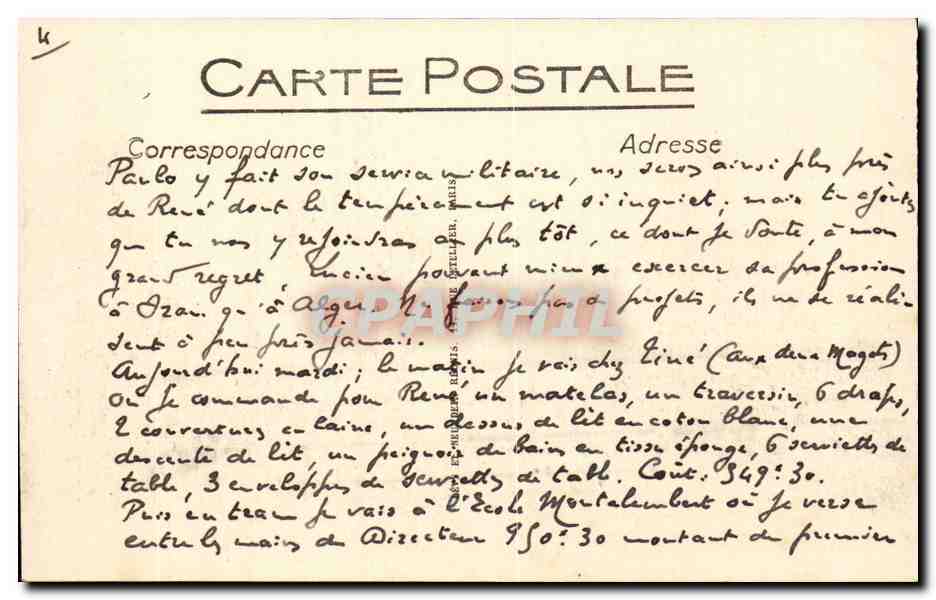 4
CARTE POSTALE
Correspondance
Adresse
Paulo y fait son service militaire, ns serons ainsi plus près
de René dont le tempérament est si inquiet ; mais tu ajoutes
que tu nous y rejoindras au plus tôt, ce dont je doute, à mon
grand regret, Lucien pouvant mieux exercer sa profession
à Oran qu'à Alger. Ne faisons pas de projets, ils ne se réali-
sent à peu près jamais.
Aujourd'hui mardi ; le matin je vais chez Tiné (aux deux Magots)
où je commande pour René un matelas, un traversin, 6 draps,
2 couvertures en laine, un dessus de lit en coton blanc, une
descente de lit, un peignoir de bains en tissu éponge, 6 serviettes de
table, 3 enveloppes de serviettes de table. Coût : 349.30.
Puis en tram je vais à l'Ecole Montalembert où je verse
entre les mains du Directeur 950.30 montant du premier
LÉVY ET NEURDEIN RÉUNIS, 44, RUE LETELLIER, PARIS
CPAPHIL